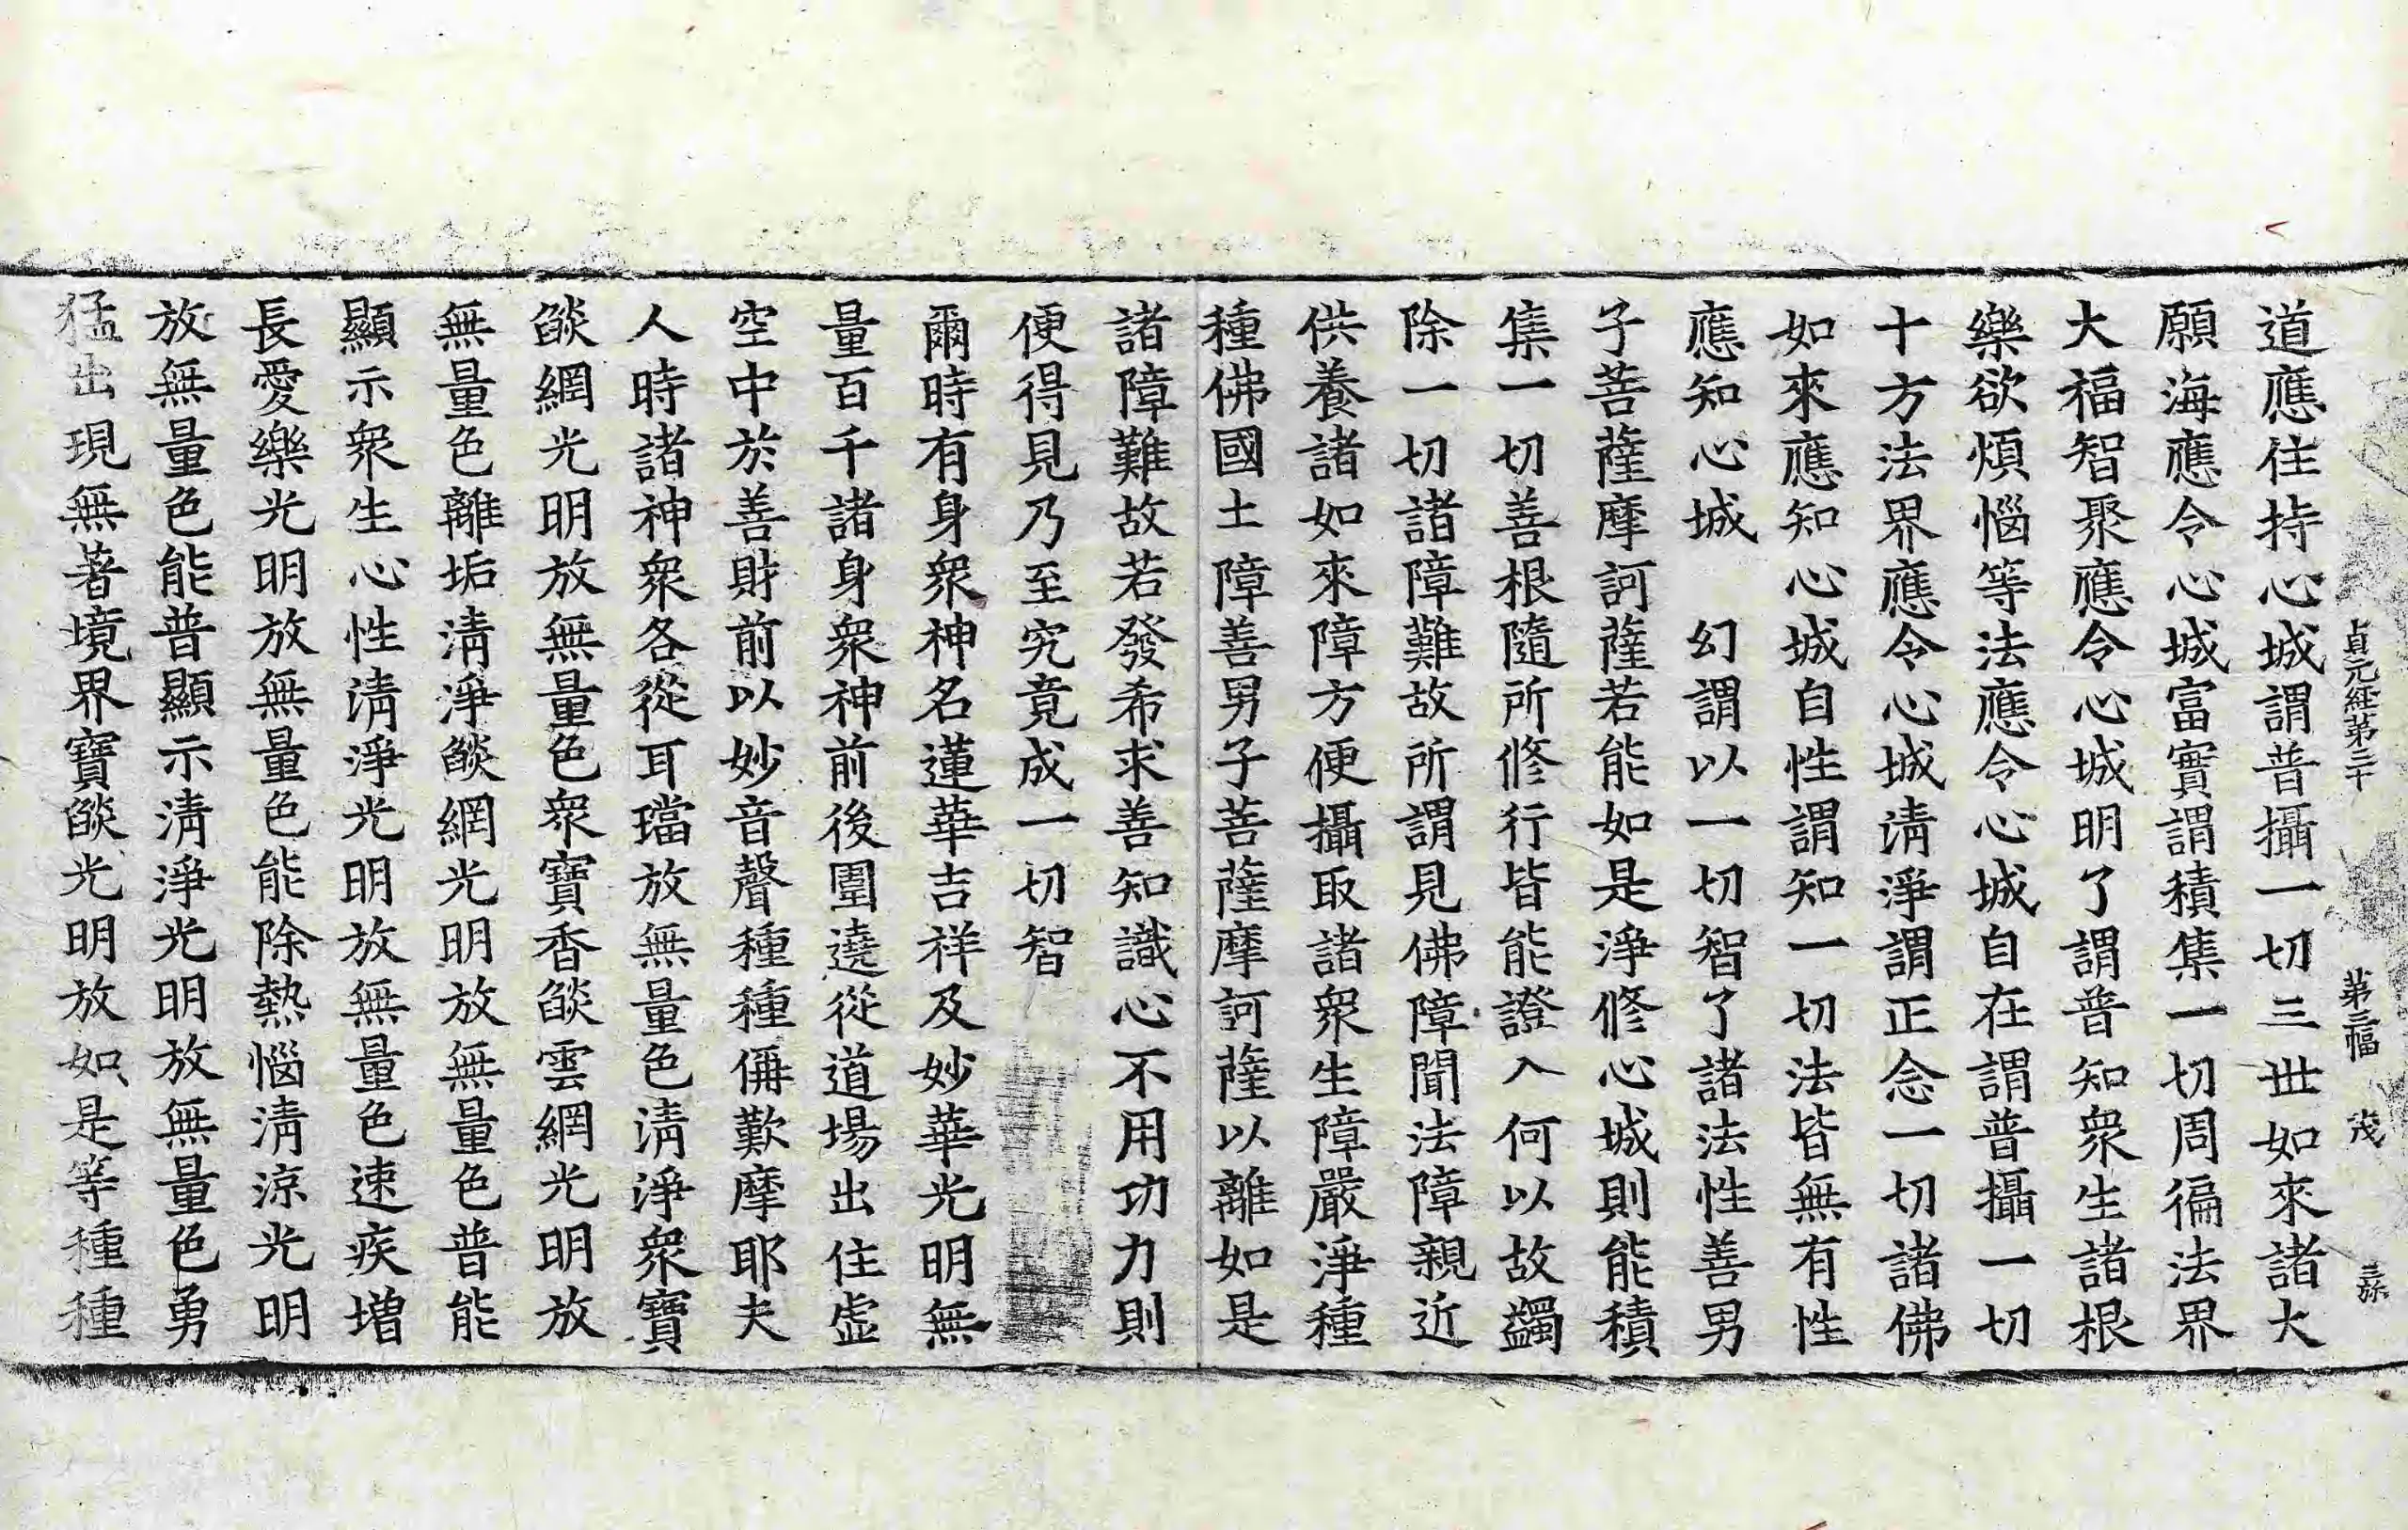 貞元経第三十 第三幅 茂
道應住持心城謂普攝一切三世如來諸大
願海應令心城富實謂積集一切周徧法界
大福智聚應令心城明了謂普知衆生諸根
樂欲煩惱等法應令心城自在謂普攝一切
十方法界應令心城清淨謂正念一切諸佛
如來應知心城自性謂知一切法皆無有性
應知心城 幻謂以一切智了諸法性善男
子菩薩摩訶薩若能如是淨修心城則能積
集一切善根隨所修行皆能證入何以故蠲
除一切諸障難故所謂見佛障聞法障親近
供養諸如來障方便攝取諸衆生障嚴淨種
種佛國土障善男子菩薩摩訶薩以離如是
諸障難故若發希求善知識心不用功力則
便得見乃至究竟成一切智
爾時有身衆神名蓮華吉祥及妙華光明無
量百千諸身衆神前後圍遶從道場出住虛
空中於善財前以妙音聲種種偁歎摩耶夫
人時諸神衆各從耳璫放無量色清淨衆寶
燄網光明放無量色衆寶香燄雲網光明放
無量色離垢清淨燄網光明放無量色普能
顯示衆生心性清淨光明放無量色速疾增
長愛樂光明放無量色能除熱惱清涼光明
放無量色能普顯示清淨光明放無量色勇
猛出現無著境界寶燄光明放如是等種種